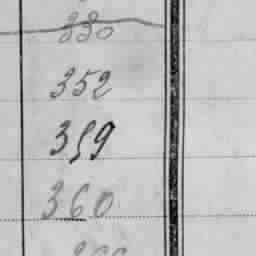 330
352
359
360